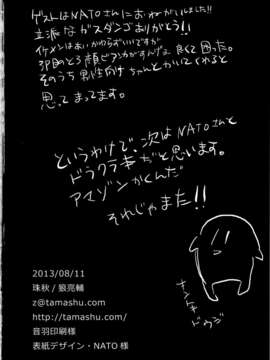 ゲストはNATOさんにおねがいしました!!
立派なガスダンゴありがとう!!
イケメンはあいかわらずいいですが
そのうち男性向けちゃんとかいてくれると
思ってまってます。
というわけで、次はNATOさんと
ドラクラ本だと思います。
アマゾンかくんだ
それじゃまた!!
2013/08/11
珠秋 / 狼亮輔
z@tamashu.com
http://tamashu.com/
音羽印刷様
表紙デザイン・NATO様